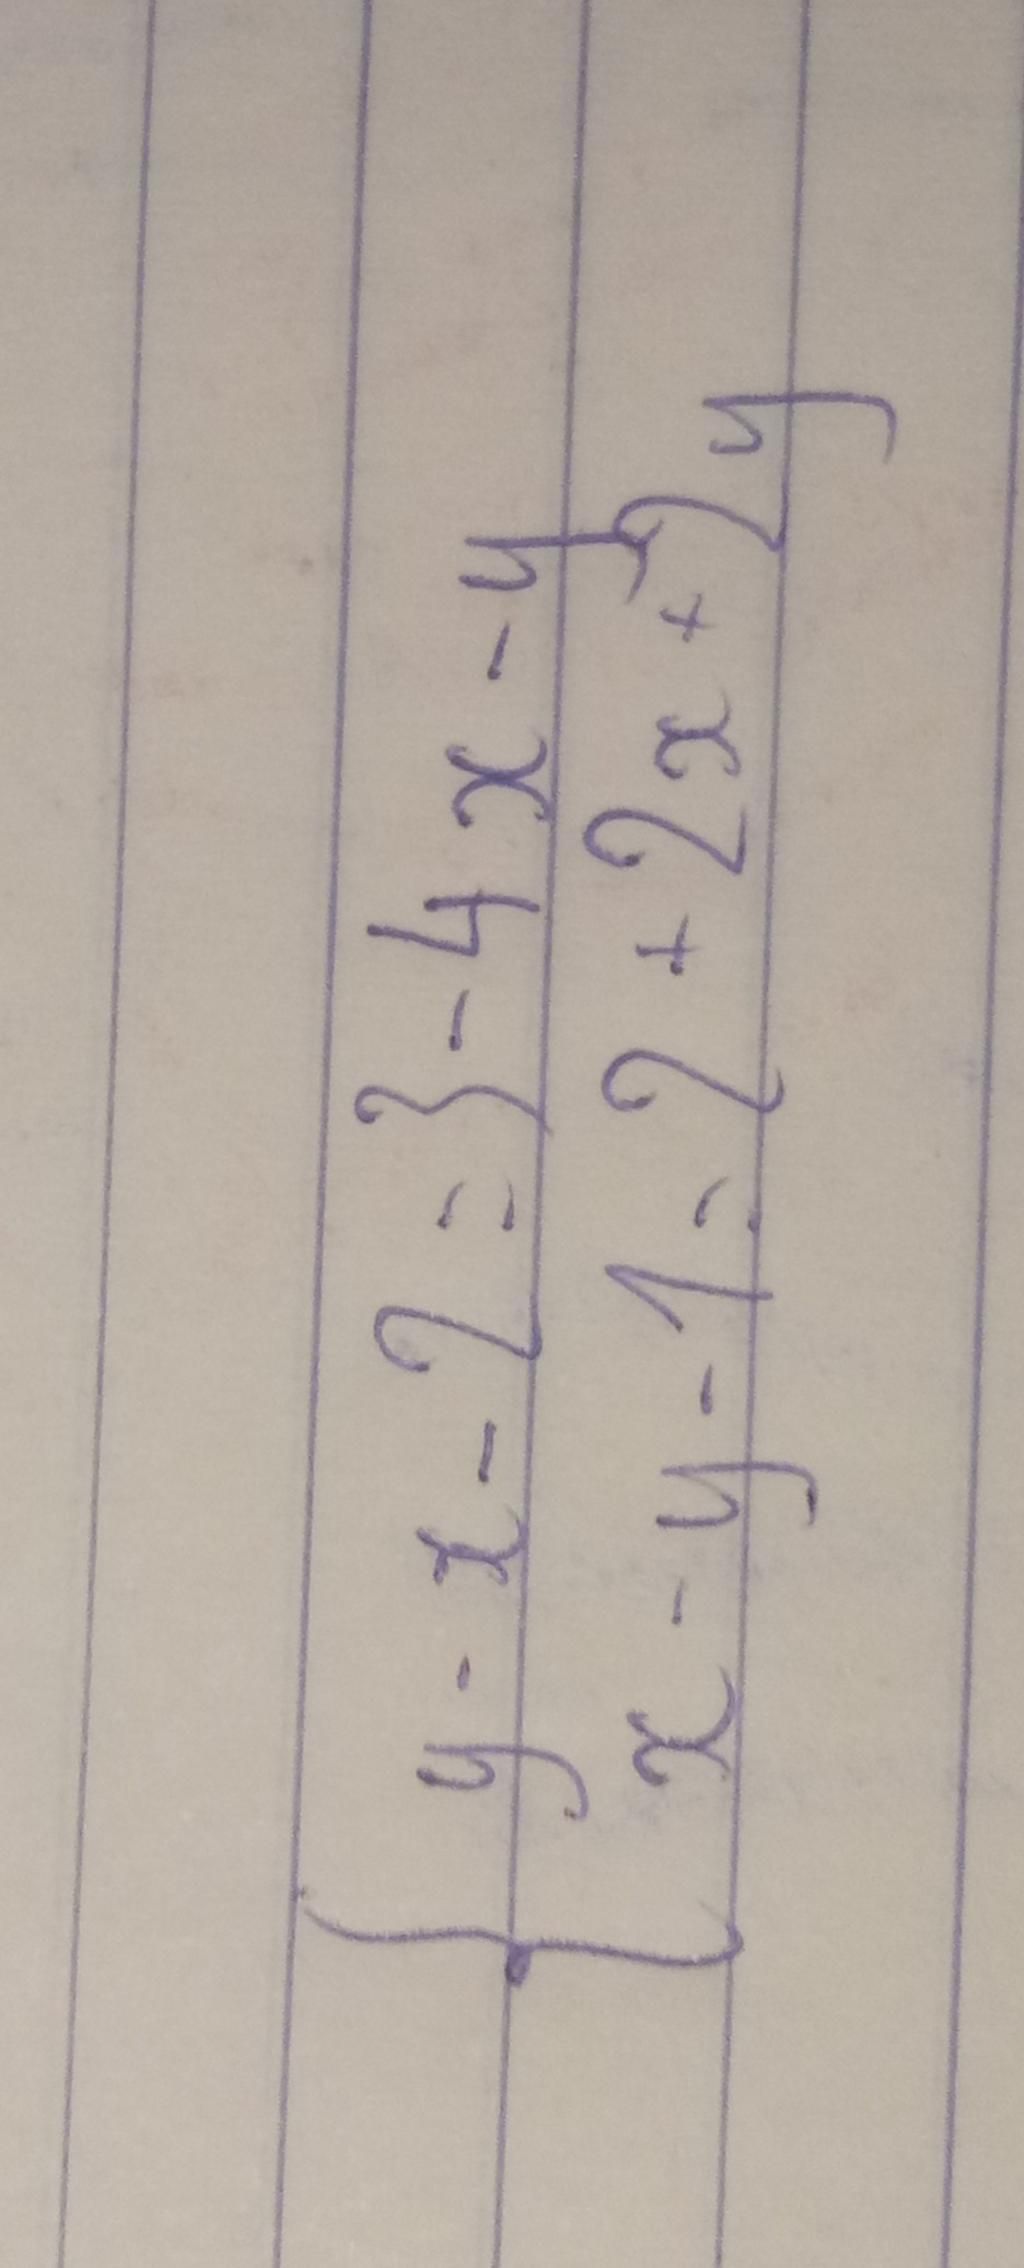 y - x - 2 = 3 - 4x - y
x - y - 1 = 2 + 2x + 2y